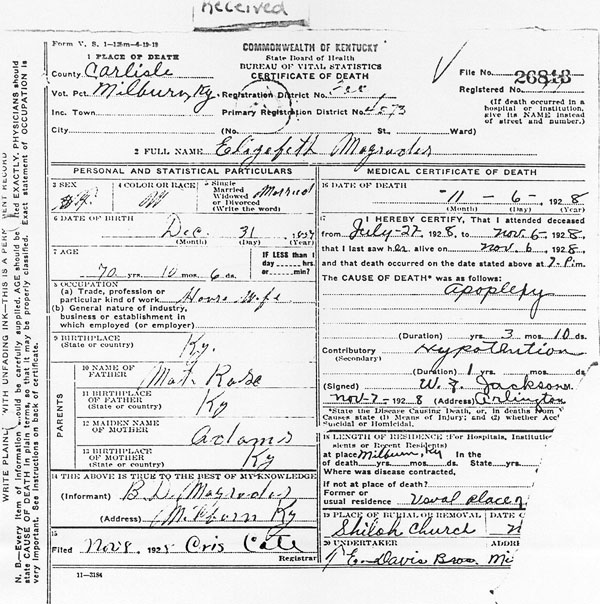 Received
Form V. S. 1-125m-6-19-13
1 PLACE OF DEATH
County Carlisle
Vot. Pct. Milburn, Ky
Inc. Town
City
COMMONWEALTH OF KENTUCKY
State Board of Health
BUREAU OF VITAL STATISTICS
CERTIFICATE OF DEATH
Registration District No.
Primary Registration District No.
(No. St., Ward)
File No. 26813
Registered No.
(If death occurred in a
hospital or institution,
give its NAME instead
of street and number.)
2 FULL NAME Elizabeth Magruder
PERSONAL AND STATISTICAL PARTICULARS
3 SEX
4 COLOR OR RACE W
5 Single
Married
Widowed
or Divorced
(Write the word)
Married
6 DATE OF BIRTH
Dec. 31
(Month) (Day) (Year)
7 AGE
70 yrs. 10 mos. 6 ds.
IF LESS than 1
day hrs.
or min?
8 OCCUPATION
(a) Trade, profession or
particular kind of work House Wife
(b) General nature of industry,
business or establishment in
which employed (or employer)
9 BIRTHPLACE
(State or country) Ky.
PARENTS
10 NAME OF
FATHER Mat. Rose
11 BIRTHPLACE
OF FATHER
(State or country) Ky
12 MAIDEN NAME
OF MOTHER Adams
13 BIRTHPLACE
OF MOTHER
(State or country) Ky
14 THE ABOVE IS TRUE TO THE BEST OF MY KNOWLEDGE
(Informant) B. D. Magruder
(Address) Milburn Ky
15
Filed Nov 8, 1928 Cris Cate
Registrar
11-3184
MEDICAL CERTIFICATE OF DEATH
16 DATE OF DEATH
11 - 6 -, 1928
(Month) (Day) (Year)
17 I HEREBY CERTIFY, That I attended deceased
from July-27, 1928, to Nov. 6-, 1928,
that I last saw her alive on Nov. 6, 1928,
and that death occurred on the date stated above at 7-P.m.
The CAUSE OF DEATH* was as follows:
Apoplexy
(Duration) yrs. 3 mos. 10 ds.
Contributory
(Secondary)
(Duration) 1 yrs. mos. ds.
(Signed) W. Z. Jackson M.
Nov-7-1928 (Address) Arlington
*State the Disease Causing Death, or, in deaths from
Causes state (1) Means of Injury; and (2) whether Acc
Suicidal or Homicidal.
18 LENGTH OF RESIDENCE (For Hospitals, Institutio
sients or Recent Residents)
at place Milburn, Ky In the
of death yrs. mos. ds. State yrs.
Where was disease contracted,
if not at place of death?
Former or
usual residence Usual place
19 PLACE OF BURIAL OR REMOVAL DATE O
Shiloh Church
20 UNDERTAKER ADDRE
E. Davis Bros Mi
WRITE PLAINL WITH UNFADING INK—THIS IS A PERM ENT RECORD
N. B.—Every item of information ould be carefully supplied. AGE should be ted EXACTLY. PHYSICIANS should
state CAUSE OF DEATH in plain terms, so that it may be properly classified. Exact statement of OCCUPATION is
very important. See instructions on back of certificate.